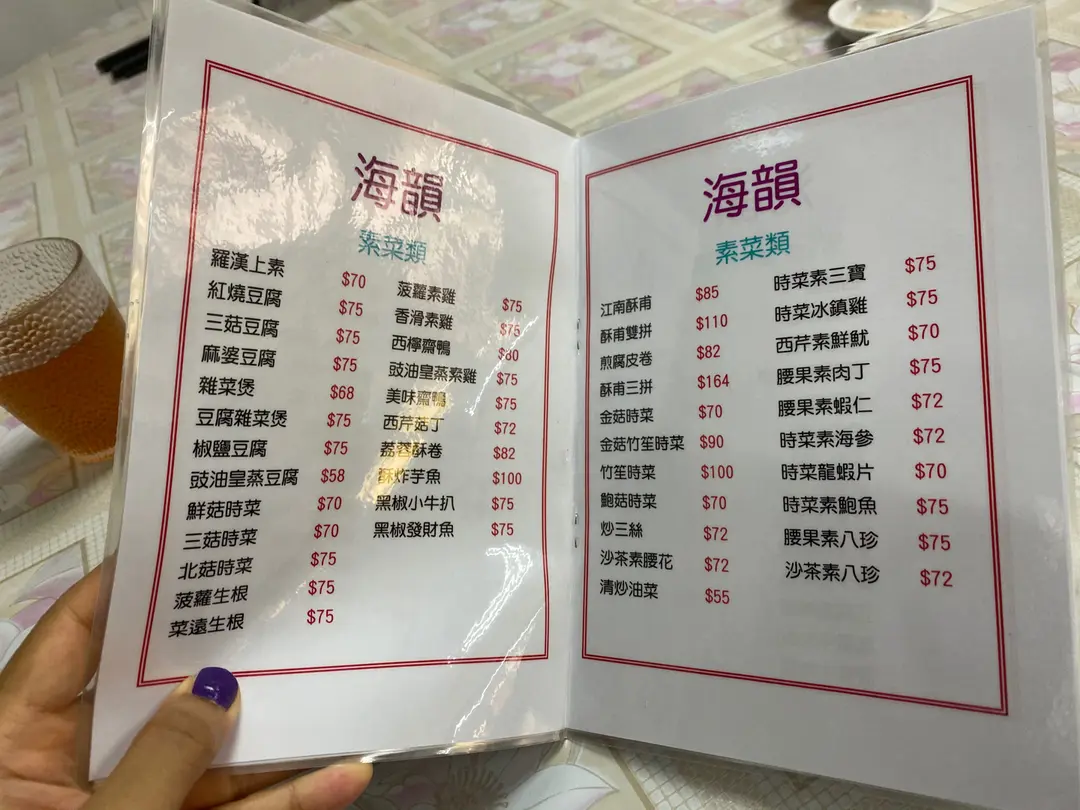 海韻
素菜類
羅漢上素 $70
紅燒豆腐 $75
三菇豆腐 $75
麻婆豆腐 $75
雜菜煲 $68
豆腐雜菜煲 $75
椒鹽豆腐 $75
豉油皇蒸豆腐 $58
鮮菇時菜 $70
三菇時菜 $70
北菇時菜 $75
菠蘿生根 $75
菜遠生根 $75
菠蘿素雞 $75
香滑素雞 $75
西檸齋鴨 $80
豉油皇蒸素雞 $75
美味齋鴨 $75
西芹菇丁 $72
荔蓉酥卷 $82
酥炸芋魚 $100
黑椒小牛扒 $75
黑椒發財魚 $75
海韻
素菜類
江南酥甫 $85
酥甫雙拼 $110
煎腐皮卷 $82
酥甫三拼 $164
金菇時菜 $70
金菇竹笙時菜 $90
竹笙時菜 $100
鮑菇時菜 $70
炒三絲 $72
沙茶素腰花 $72
清炒油菜 $55
時菜素三寶 $75
時菜冰鎮雞 $75
西芹素鮮魷 $70
腰果素肉丁 $75
腰果素蝦仁 $72
時菜素海參 $72
時菜龍蝦片 $70
時菜素鮑魚 $75
腰果素八珍 $75
沙茶素八珍 $72